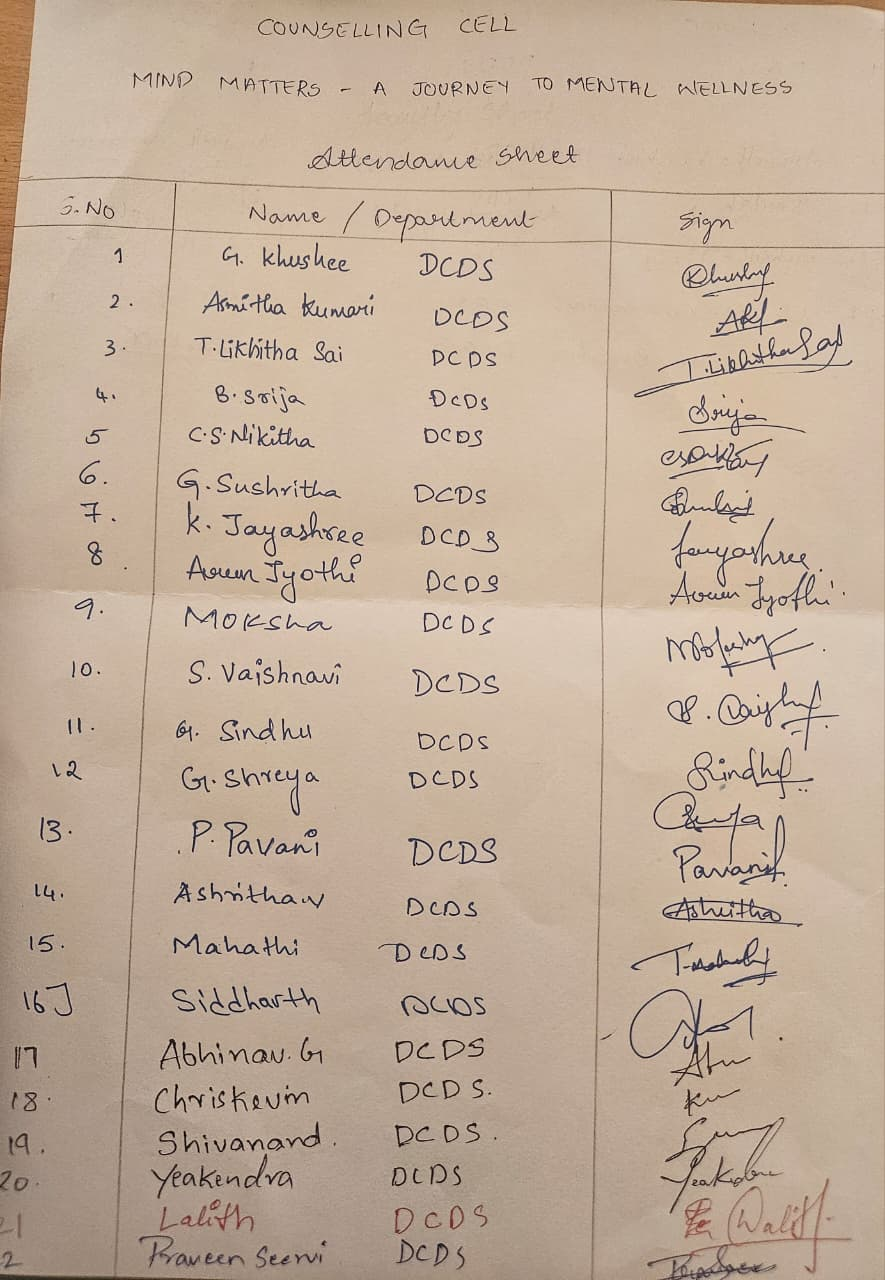 COUNSELLING CELL
MIND MATTERS - A JOURNEY TO MENTAL WELLNESS
Attendance Sheet
S.No Name / Department Sign
1 G. Khushee DCDS
2. Asmitha Kumari DCDS
3. T.Likhitha Sai DCDS T.LikhithaSai
4. B.Srija DCDS Srija
5 C.S.Nikitha DCDS
6. G.Sushritha DCDS
7. K. Jayashree DCDS Jayashree
8. Arun Jyothi DCDS Arun Jyothi
9. Moksha DCDS
10. S. Vaishnavi DCDS
11. G. Sindhu DCDS Sindhu
12 G.Shreya DCDS
13. P. Pavani DCDS Pavani
14. Ashritha.V DCDS Ashritha
15. Mahathi DCDS
16] Siddharth DCDS
17 Abhinav.G DCDS
18. Chriskevin DCDS.
19. Shivanand. DCDS.
20. Yeakendra DCDS
21 Lalith DCDS Lalith
2 Praveen Seervi DCDS